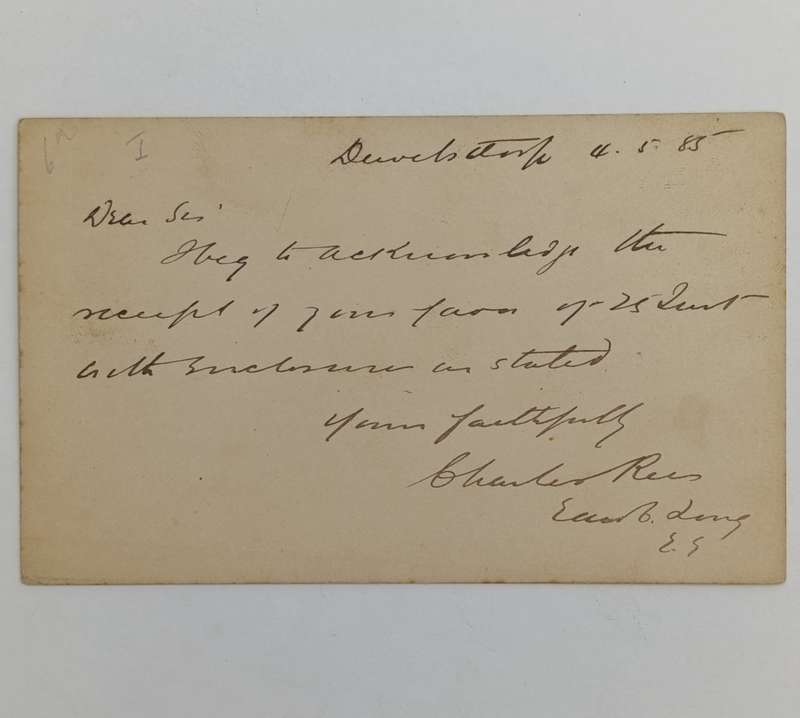 Dewetsdorp 4. 5. 85
Dear Sir
I beg to acknowledge the
receipt of your favor of 25
with Enclosure as stated
Yours faithfully
Charles Rees
I